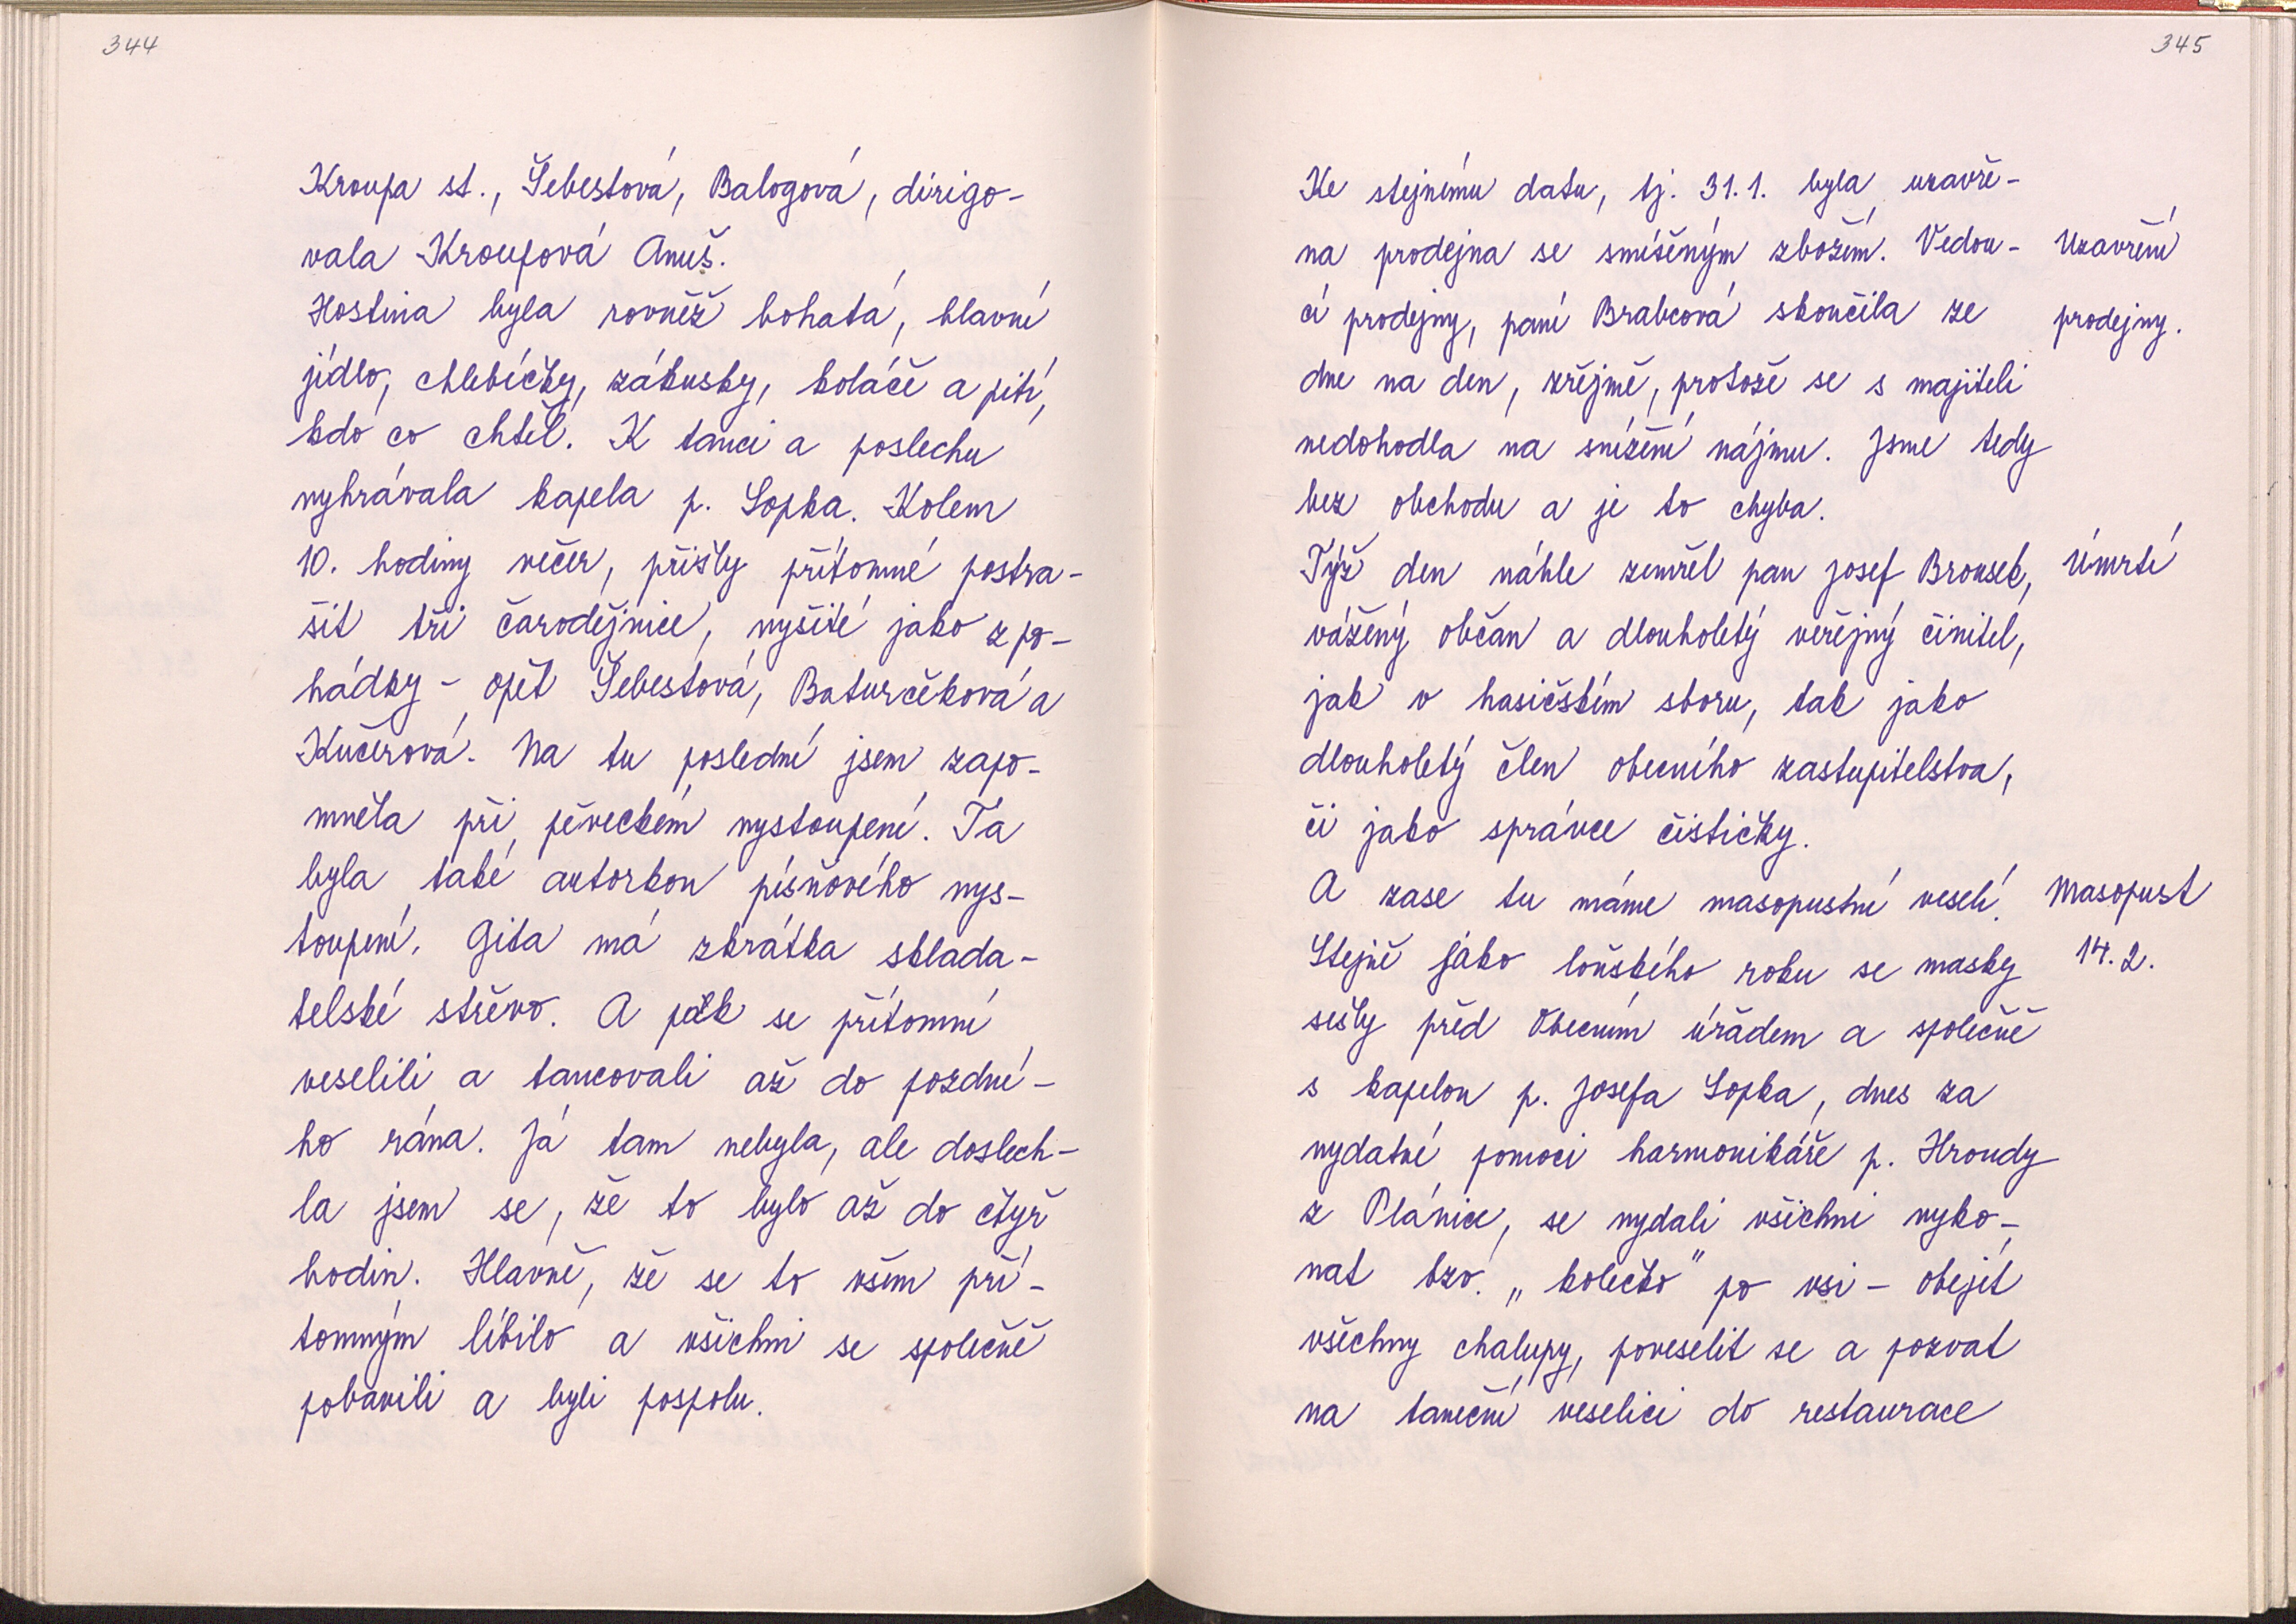 344
Kroupa st., Šebestová, Balogová, dirigo-
vala Kroupová Anuš.
Hostina byla rovněž bohatá, hlavní
jídlo, chlebíčky, zákusky, koláče a pití,
kdo co chtěl. K tanci a poslechu
vyhrávala kapela p. Sopka. Kolem
10. hodiny večer, přišly přítomné postra-
šit tři čarodějnice, vyšité jako z po-
hádky - opět Šebestová, Baturčeková a
Kučerová. Na tu poslední jsem zapo-
mněla při pěveckém vystoupení. Ta
byla také autorkou písňového vys-
toupení. Gita má zkrátka sklada-
telské střevo. A pak se přítomní
veselili a tancovali až do pozdní-
ho rána. Já tam nebyla, ale doslech-
la jsem se, že to bylo až do čtyř
hodin. Hlavně, že se to všem pří-
tomným líbilo a všichni se společně
pobavili a byli pospolu.
345
Ke stejnému datu, tj. 31.1. byla uzavře-
na prodejna se smíšeným zbožím. Vedou-
cí prodejny, paní Brabcová skončila ze
dne na den, zřejmě, protože se s majiteli
nedohodla na snížení nájmu. Jsme tedy
bez obchodu a je to chyba.
Týž den náhle zemřel pan Josef Brousek,
vážený občan a dlouholetý veřejný činitel,
jak v hasičském sboru, tak jako
dlouholetý člen obecního zastupitelstva,
či jako správce čističky.
A zase tu máme masopustní veselí.
Stejně jako loňského roku se masky
sešly před Obecním úřadem a společně
s kapelou p. Josefa Sopka, dnes za
vydatné pomoci harmonikáře p. Hroudy
z Plánice, se vydali všichni vyko-
nat tzv. „kolečko" po vsi - obejít
všechny chalupy, poveselit se a pozvat
na taneční veselici do restaurace
Uzavření
prodejny.
Úmrtí
Masopust
14.2.